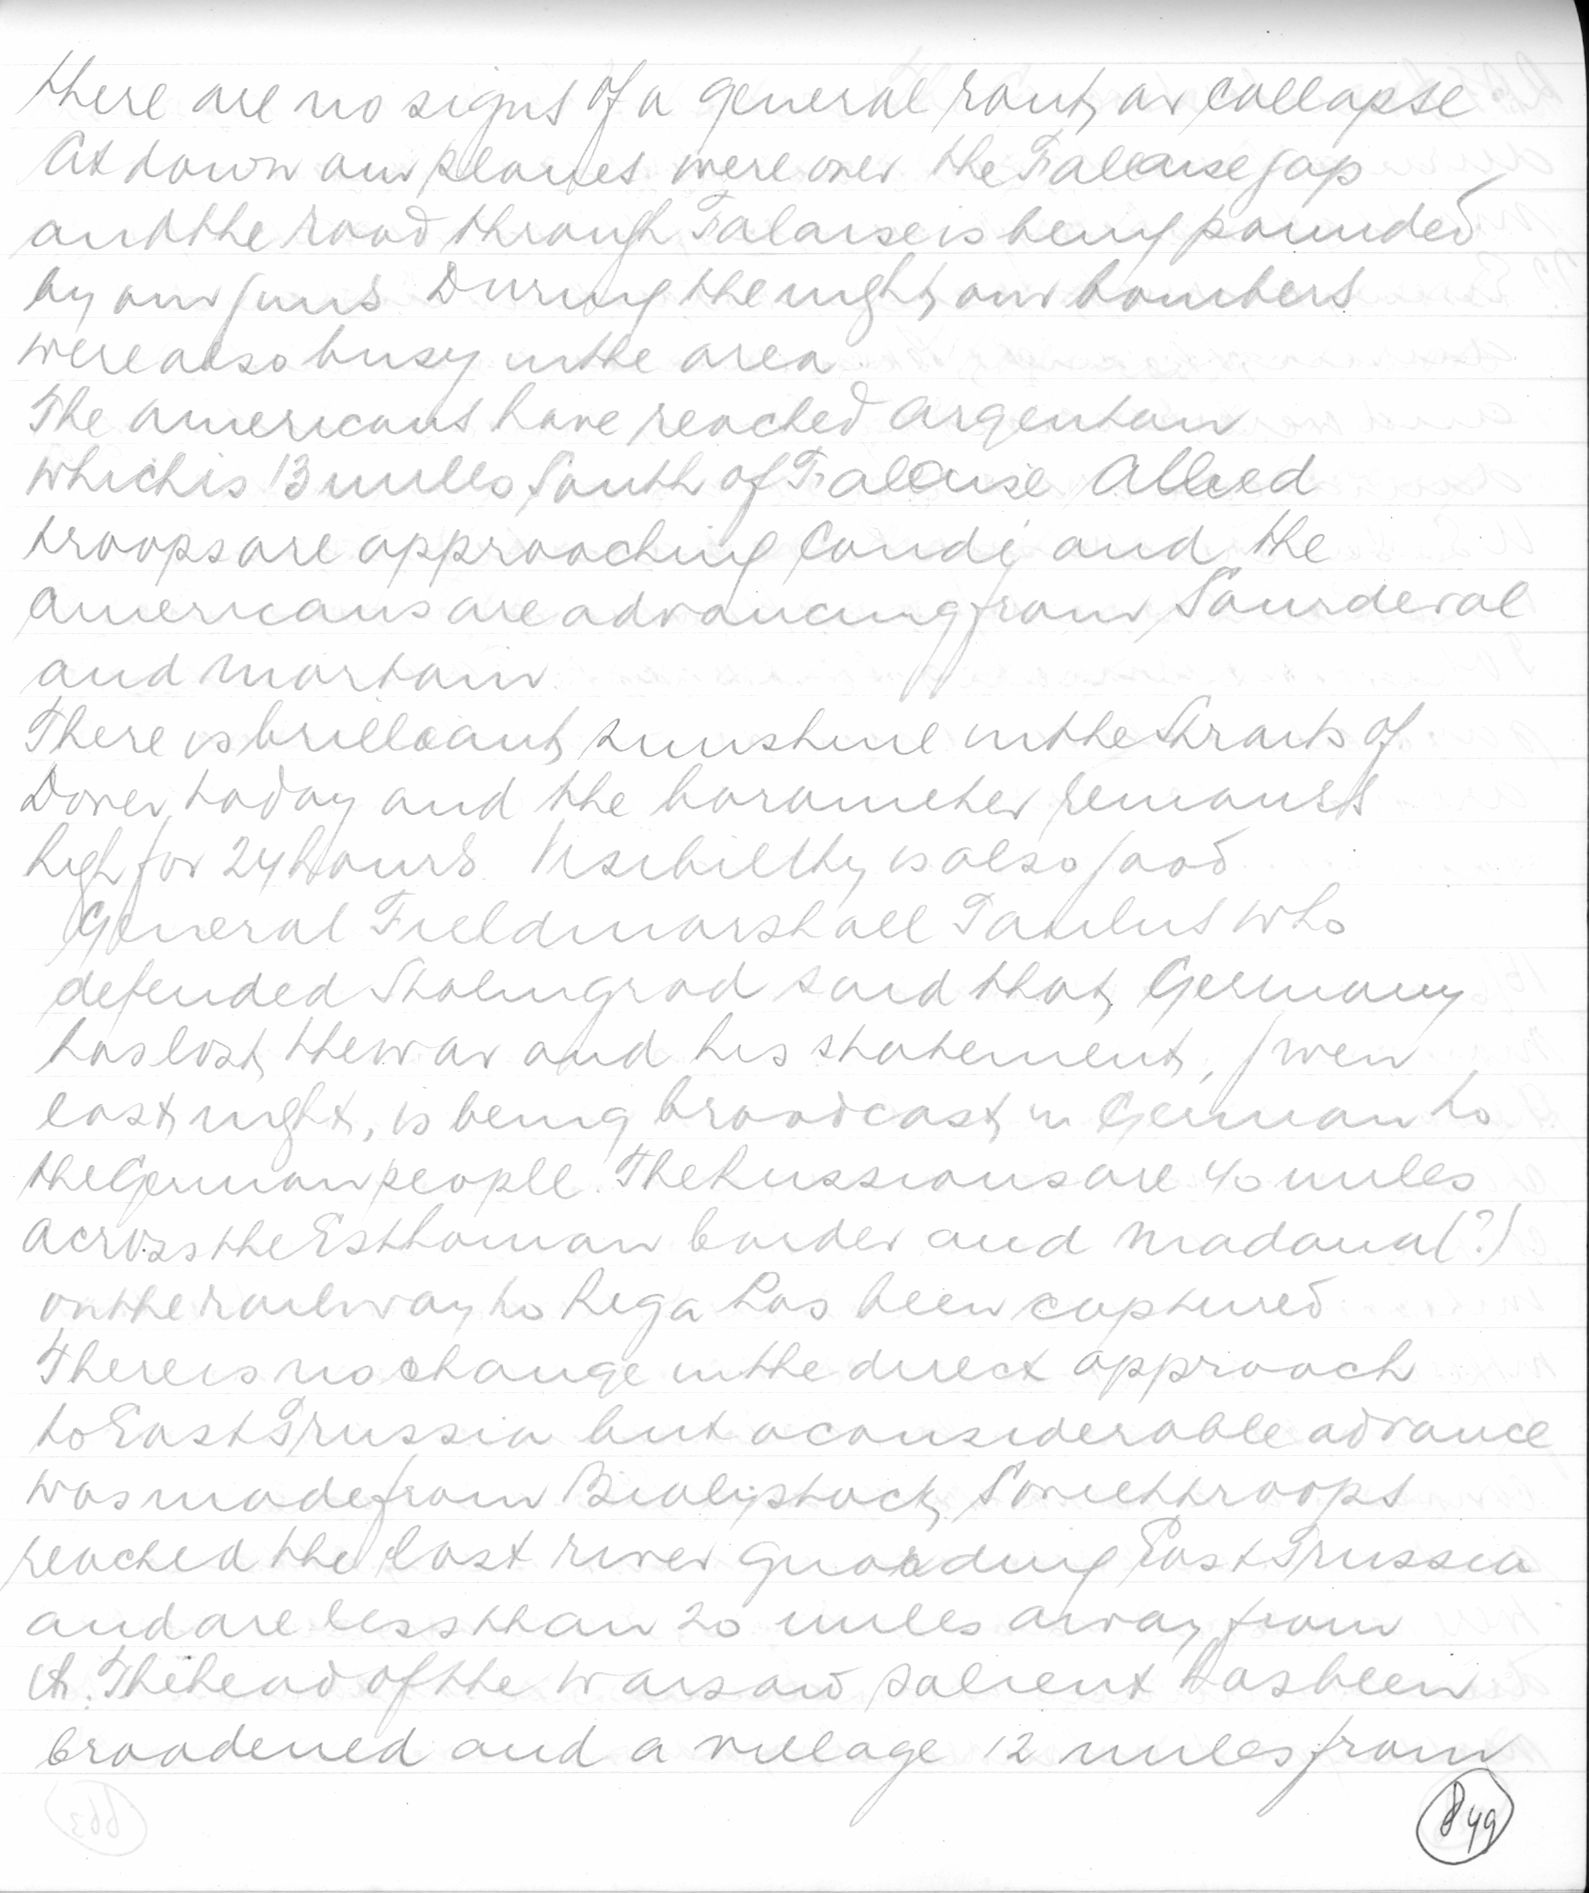 there are no signs of a general rout, or collapse
At dawn our planes were over the Falaise gap
and the road through Falaise is being pounded
by our guns During the night, our bombers
were also busy in the area
The Americans have reached Argentan
which is 13 miles South of Falaise Allied
troops are approaching Condé and the
Americans are advancing from Sourdeval
and Mortain
There is brilliant, sunshine in the Straits of
Dover today and the barometer remains
high for 24 hours Visibility is also good
General Fieldmarshall Paulus who
defended Stalingrad said that, Germany
has lost, the war and his statement, given
last, night, is being broadcast, in German to
the German people. The Russians are 40 miles
across the Esthonian border and Madona (?)
on the railway to Riga has been captured
There is no change in the direct approach
to East Prussia but a considerable advance
was made from Bialystock, Soviet troops
reached the last river guarding East Prussia
and are less than 20 miles away from
it. The head of the Warsaw salient has been
broadened and a village 12 miles from
849